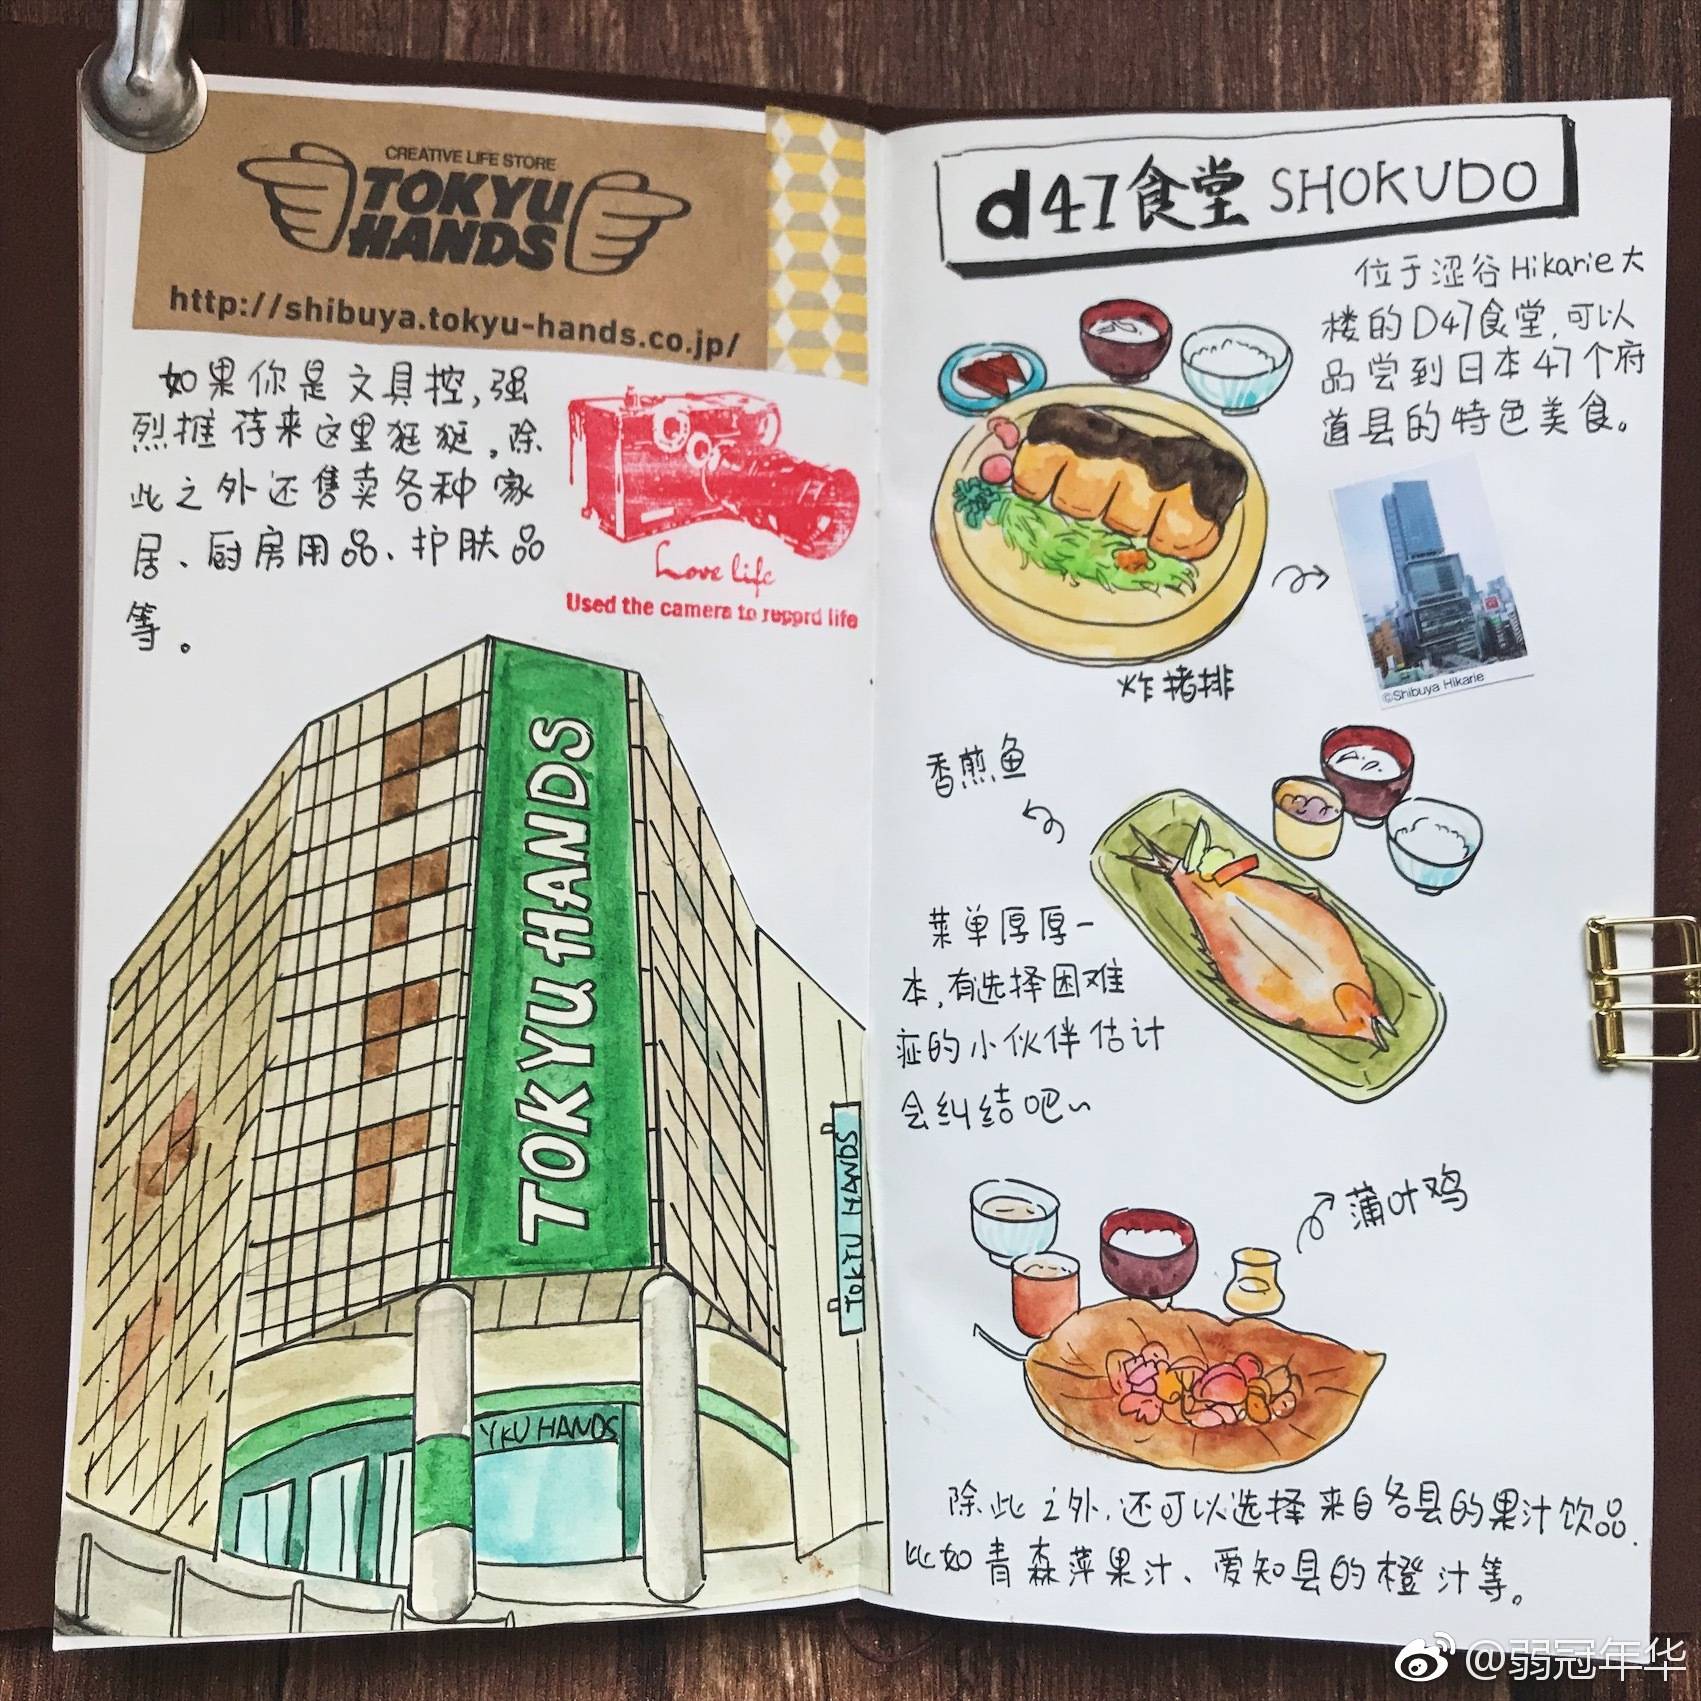 CREATIVE LIFE STORE
TOKYU
HANDS
http://shibuya.tokyu-hands.co.jp/
如果你是文具控,强
烈推荐来这里逛逛。除
此之外还售卖各种家
居、厨房用品、护肤品
等。
Love life
Used the camera to record life
TOKYU HANDS
TOKYU HANDS
YKU HANDS
d47食堂 SHOKUDO
位于涩谷Hikarie大
楼的D47食堂,可以
品尝到日本47个府
道县的特色美食。
©Shibuya Hikarie
炸猪排
香煎鱼
菜单厚厚一
本,有选择困难
症的小伙伴估计
会纠结吧~
蒲叶鸡
除此之外,还可以选择来自各县的果汁饮品.
比如青森苹果汁、爱知县的橙汁等。
@弱冠年华